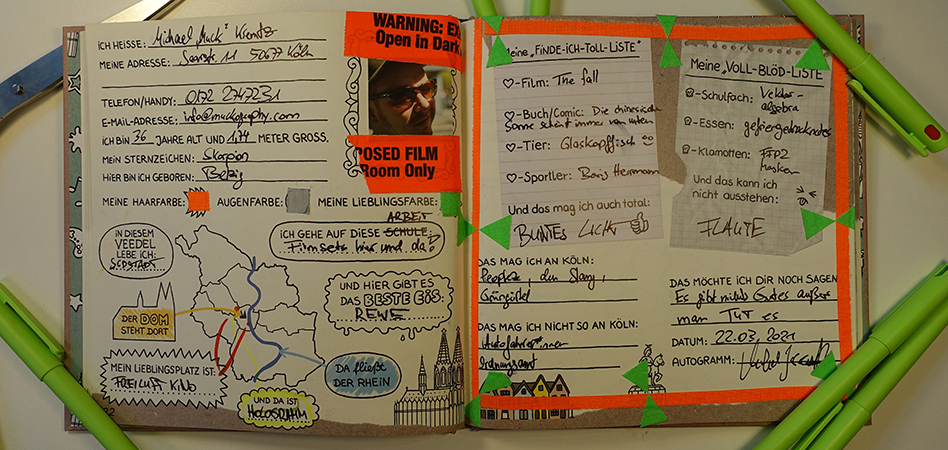 ICH HEISSE: Michael "Muck" Kremtz
MEINE ADRESSE: 11 50677 Köln
TELEFON/HANDY: 0172 2747231
E-MAIL-ADRESSE: info@muckography.com
ICH BIN 36 JAHRE ALT UND 1,74 METER GROSS.
MEIN STERNZEICHEN: Skorpion
HIER BIN ICH GEBOREN: Belzig
MEINE HAARFARBE: AUGENFARBE: MEINE LIEBLINGSFARBE:
WARNING: EX
Open in Dark
POSED FILM
Room Only
IN DIESEM
VEEDEL
LEBE ICH:
SÜDSTADT
ARBEIT
ICH GEHE AUF DIESE SCHULE:
Filmsets hier und da
UND HIER GIBT ES
DAS BESTE EIS:
REWE
DER DOM
STEHT DORT
MEIN LIEBLINGSPLATZ IST:
FREILUFT KINO
DA fließt
DER RHEIN
UND DA IST
HOLOSRUHM
22
Meine „FINDE-ICH-TOLL-LISTE"
♡-Film: The fall
♡-Buch/Comic: Die chinesische
Sonne scheint immer von unten
♡-Tier: Glaskopffisch
♡-Sportler: Boris Herrmann
Und das mag ich auch total:
BUNTES LICHT
DAS MAG ICH AN KÖLN:
People, den Slang,
Grüngürtel
DAS MAG ICH NICHT SO AN KÖLN:
Autofahrer*innen
Ordnungsamt
Meine „VOLL-BLÖD-LISTE
-Schulfach: Vektor-
algebra
-Essen: geliergedrecktes
-Klamotten: FFP2
Masken
Und das kann ich
nicht ausstehen:
FLAUTE
DAS MÖCHTE ICH DIR NOCH SAGEN
Es gibt nichts Gutes außer
man TUT es
DATUM: 22.03.2021
AUTOGRAMM: